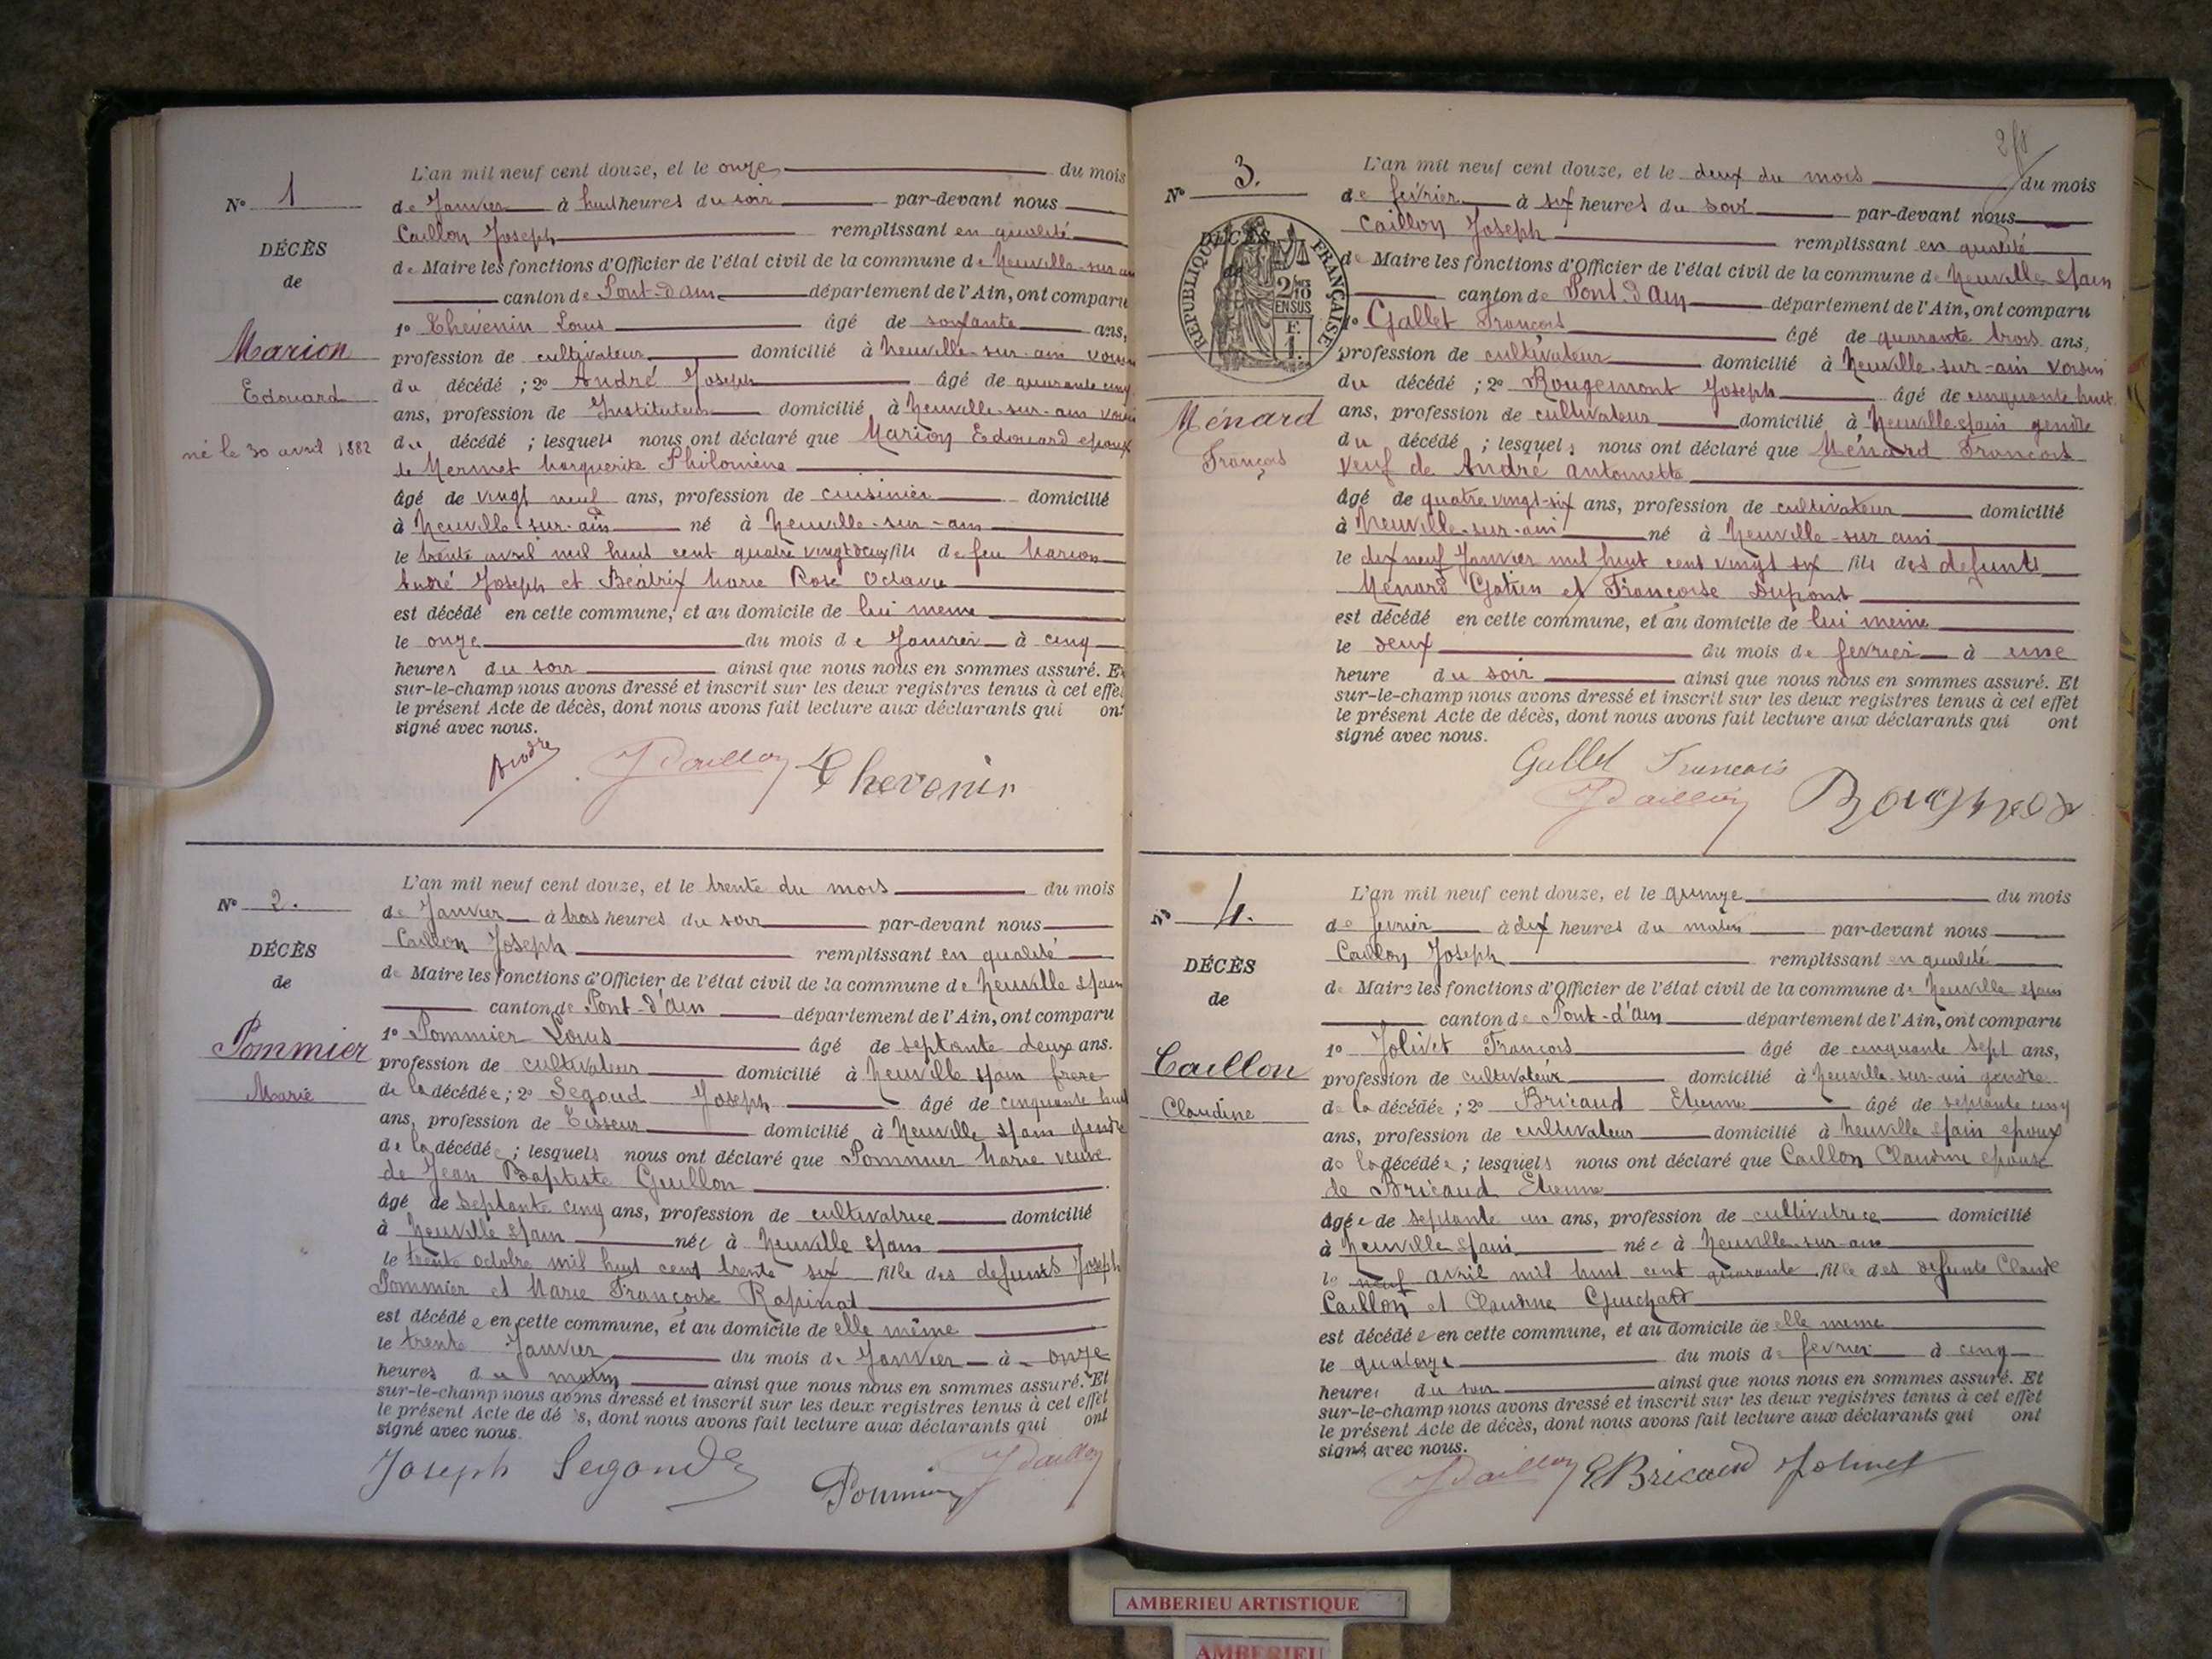 N° 1
DÉCÈS
de
Marion
Edouard
né le 30 avril 1882
L'an mil neuf cent douze, et le onze du mois
de Janvier à huit heures du soir par-devant nous
Caillon Joseph remplissant en qualité
de Maire les fonctions d'Officier de l'état civil de la commune de Neuville-sur-ain
canton de Pont-d'Ain département de l'Ain, ont comparu
1° Thévenin Louis âgé de soixante ans,
profession de cultivateur domicilié à Neuville-sur-ain voisin
du décédé ; 2° André Joseph âgé de quarante cinq
ans, profession de Instituteur domicilié à Neuville-sur-ain voisin
du décédé ; lesquels nous ont déclaré que Marion Edouard epoux
de Mermet Marguerite Philomène
âgé de vingt neuf ans, profession de cuisinier domicilié
à Neuville-sur-ain né à Neuville-sur-ain
le trente avril mil huit cent quatre vingt deux fils de feu Marion
André Joseph et Béatrix Marie Rose Octavie
est décédé en cette commune, et au domicile de lui meme
le onze du mois de Janvier à cinq
heures du soir ainsi que nous nous en sommes assuré. Et
sur-le-champ nous avons dressé et inscrit sur les deux registres tenus à cet effet
le présent Acte de décès, dont nous avons fait lecture aux déclarants qui ont
signé avec nous.
André JCaillon Thevenin
N° 2.
DÉCÈS
de
Pommier
Marie
L'an mil neuf cent douze, et le trente du mois du mois
de Janvier à trois heures du soir par-devant nous
Caillon Joseph remplissant en qualité
de Maire les fonctions d'Officier de l'état civil de la commune de Neuville s/ain
canton de Pont-d'Ain département de l'Ain, ont comparu
1° Pommier Louis âgé de septante deux ans.
profession de cultivateur domicilié à Neuville s/ain frere
de la décédée ; 2° Segoud Joseph âgé de cinquante huit
ans, profession de Tisseur domicilié à Neuville s/ain gendre
de la décédée ; lesquels nous ont déclaré que Pommier Marie veuve
de Jean Baptiste Guillon
âgé de septante cinq ans, profession de cultivatrice domicilié
à Neuville s/ain née à Neuville s/ain
le trente octobre mil huit cent trente six fille des defunts Joseph
Pommier et Marie Françoise Rapinat
est décédée en cette commune, et au domicile de elle même
le trente Janvier du mois de Janvier à onze
heures du matin ainsi que nous nous en sommes assuré. Et
sur-le-champ nous avons dressé et inscrit sur les deux registres tenus à cet effet
le présent Acte de décès, dont nous avons fait lecture aux déclarants qui ont
signé avec nous.
Joseph Segoud Pommier JCaillon
N° 3.
DÉCÈS
de
RÉPUBLIQUE FRANÇAISE
2/10 EN SUS
F. 1.
Ménard
François
L'an mil neuf cent douze, et le deux du mois du mois
de fevrier à six heures du soir par-devant nous
Caillon Joseph remplissant en qualité
de Maire les fonctions d'Officier de l'état civil de la commune de Neuville s/ain
canton de Pont-d'Ain département de l'Ain, ont comparu
1° Gallet François âgé de quarante trois ans,
profession de cultivateur domicilié à Neuville-sur-ain voisin
du décédé ; 2° Rougemont Joseph âgé de cinquante huit
ans, profession de cultivateur domicilié à Neuville s/ain gendre
du décédé ; lesquels nous ont déclaré que Ménard François
veuf de André Antoinette
âgé de quatre vingt-six ans, profession de cultivateur domicilié
à Neuville-sur-ain né à Neuville-sur ain
le dix neuf Janvier mil huit cent vingt six fils des defunts
Ménard Gatien et Françoise Dupont
est décédé en cette commune, et au domicile de lui meme
le deux du mois de fevrier à une
heure du soir ainsi que nous nous en sommes assuré. Et
sur-le-champ nous avons dressé et inscrit sur les deux registres tenus à cet effet
le présent Acte de décès, dont nous avons fait lecture aux déclarants qui ont
signé avec nous.
Gallet Francois
JCaillon
N° 4.
DÉCÈS
de
Caillon
Claudine
L'an mil neuf cent douze, et le quinze du mois
de fevrier à dix heures du matin par-devant nous
Caillon Joseph remplissant en qualité
de Maire les fonctions d'Officier de l'état civil de la commune de Neuville s/ain
canton de Pont-d'Ain département de l'Ain, ont comparu
1° Jolivet François âgé de cinquante sept ans,
profession de cultivateur domicilié à Neuville-sur-ain gendre
de la décédée ; 2° Bricaud Etienne âgé de septante cinq
ans, profession de cultivateur domicilié à Neuville s/ain epoux
de la décédée ; lesquels nous ont déclaré que Caillon Claudine epouse
de Bricaud Etienne
âgée de septante un ans, profession de cultivatrice domicilié
à Neuville s/ain née à Neuville-sur-ain
le neuf avril mil huit cent quarante fille des defunts Claude
Caillon et Claudine Guichard
est décédée en cette commune, et au domicile de elle meme
le quatorze du mois de fevrier à cinq
heures du soir ainsi que nous nous en sommes assuré. Et
sur-le-champ nous avons dressé et inscrit sur les deux registres tenus à cet effet
le présent Acte de décès, dont nous avons fait lecture aux déclarants qui ont
signé avec nous.
JCaillon EBricaud Jolivet
AMBERIEU ARTISTIQUE
AMBERIEU